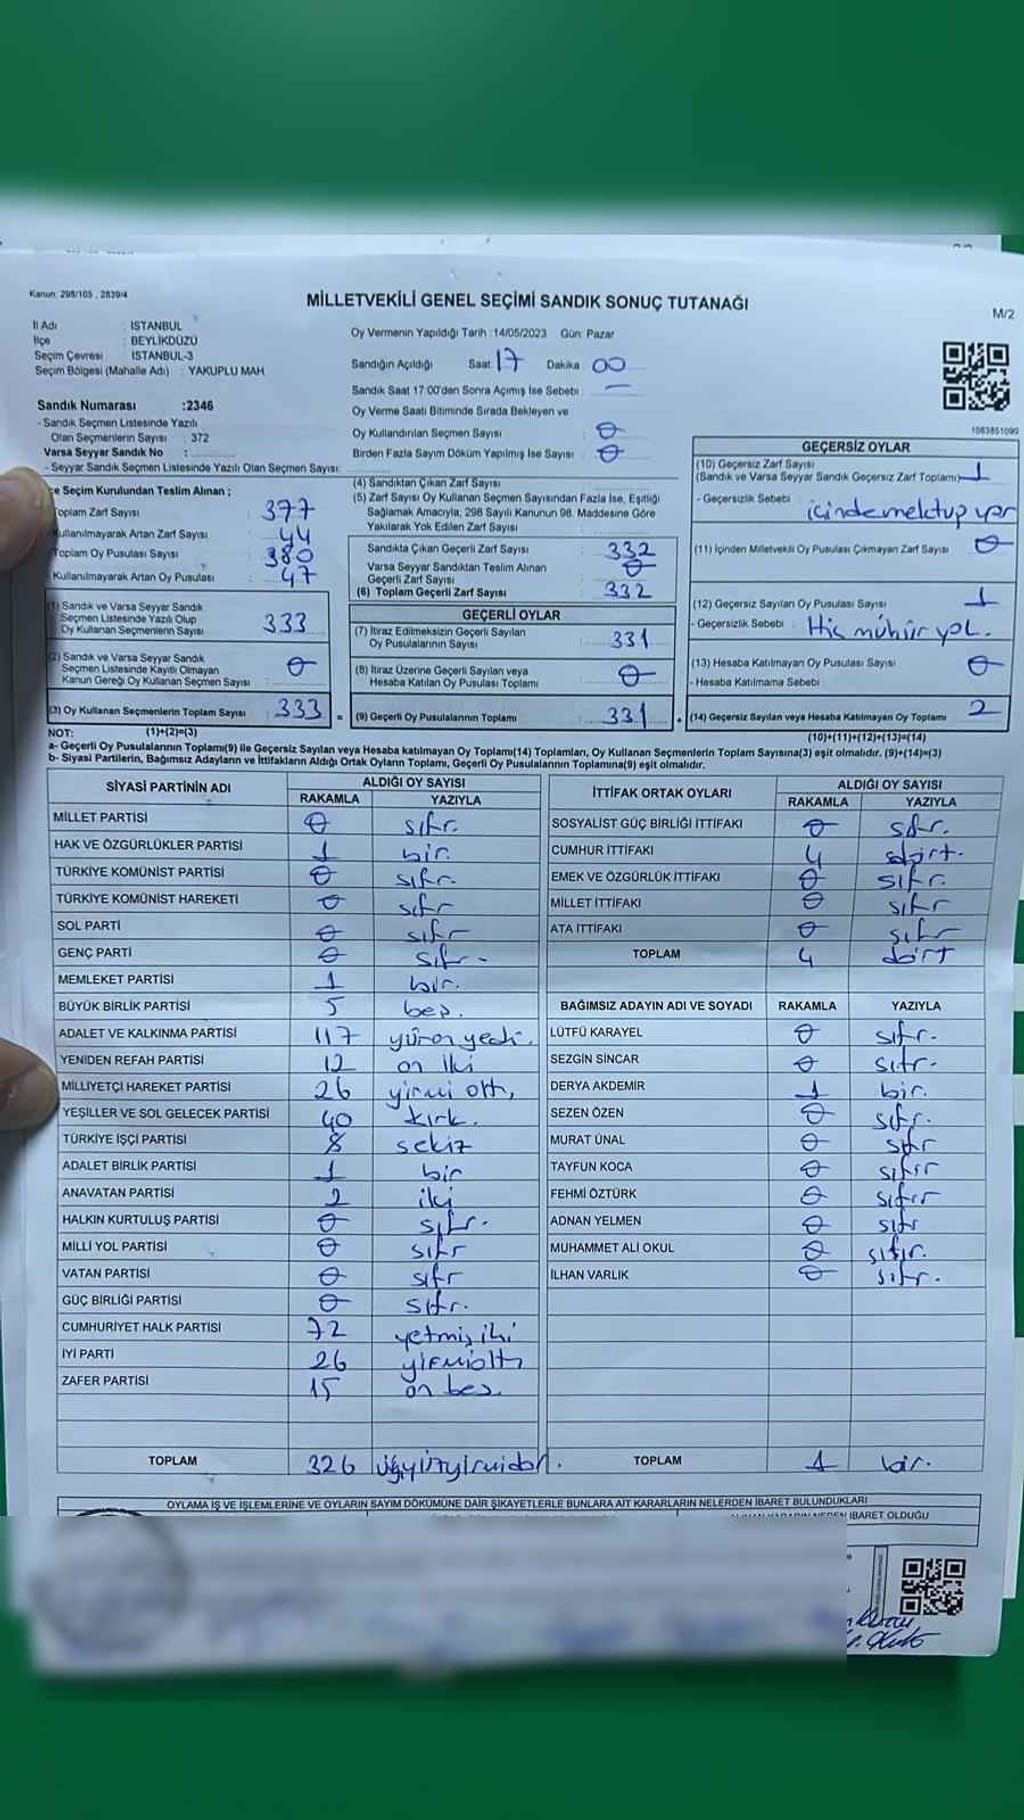 Kanun: 298/105 , 2839/4
MİLLETVEKİLİ GENEL SEÇİMİ SANDIK SONUÇ TUTANAĞI
M/2
İl Adı : İSTANBUL
İlçe : BEYLİKDÜZÜ
Seçim Çevresi : İSTANBUL-3
Seçim Bölgesi (Mahalle Adı) : YAKUPLU MAH
Sandık Numarası :2346
- Sandık Seçmen Listesinde Yazılı
Olan Seçmenlerin Sayısı : 372
Varsa Seyyar Sandık No :
- Seyyar Sandık Seçmen Listesinde Yazılı Olan Seçmen Sayısı:
Oy Vermenin Yapıldığı Tarih :14/05/2023 Gün: Pazar
Sandığın Açıldığı Saat: 17 Dakika 00
Sandık Saat 17.00'den Sonra Açımış İse Sebebi : —
Oy Verme Saati Bitiminde Sırada Bekleyen ve
Oy Kullandırılan Seçmen Sayısı : 0
Birden Fazla Sayım Döküm Yapılmış İse Sayısı : 0
1083851090
Seçim Kurulundan Teslim Alınan ;
Toplam Zarf Sayısı : 377
Kullanılmayarak Artan Zarf Sayısı : 44
Toplam Oy Pusulası Sayısı : 380
- Kullanılmayarak Artan Oy Pusulası : 47
(1) Sandık ve Varsa Seyyar Sandık
Seçmen Listesinde Yazılı Olup
Oy Kullanan Seçmenlerin Sayısı : 333
(2) Sandık ve Varsa Seyyar Sandık
Seçmen Listesinde Kayıtlı Olmayan
Kanun Gereği Oy Kullanan Seçmen Sayısı : 0
(3) Oy Kullanan Seçmenlerin Toplam Sayısı : 333 =
(4) Sandıktan Çıkan Zarf Sayısı
(5) Zarf Sayısı Oy Kullanan Seçmen Sayısından Fazla İse, Eşitliği
Sağlamak Amacıyla; 298 Sayılı Kanunun 98. Maddesine Göre
Yakılarak Yok Edilen Zarf Sayısı :
Sandıkta Çıkan Geçerli Zarf Sayısı : 332
Varsa Seyyar Sandıktan Teslim Alınan
Geçerli Zarf Sayısı : 0
(6) Toplam Geçerli Zarf Sayısı : 332
GEÇERLİ OYLAR
(7) İtiraz Edilmeksizin Geçerli Sayılan
Oy Pusulalarının Sayısı : 331
(8) İtiraz Üzerine Geçerli Sayılan veya
Hesaba Katılan Oy Pusulası Toplamı : 0
(9) Geçerli Oy Pusulalarının Toplamı : 331 +
GEÇERSİZ OYLAR
(10) Geçersiz Zarf Sayısı
(Sandık ve Varsa Seyyar Sandık Geçersiz Zarf Toplamı) 1
- Geçersizlik Sebebi : içinde mektup var
(11) İçinden Milletvekili Oy Pusulası Çıkmayan Zarf Sayısı : 0
(12) Geçersiz Sayılan Oy Pusulası Sayısı : 1
- Geçersizlik Sebebi : Hiç mühür yok.
(13) Hesaba Katılmayan Oy Pusulası Sayısı : 0
- Hesaba Katılmama Sebebi
(14) Geçersiz Sayılan veya Hesaba Katılmayan Oy Toplamı : 2
NOT: (1)+(2)=(3) (10)+(11)+(12)+(13)=(14)
a- Geçerli Oy Pusulalarının Toplamı(9) ile Geçersiz Sayılan veya Hesaba katılmayan Oy Toplamı(14) Toplamları, Oy Kullanan Seçmenlerin Toplam Sayısına(3) eşit olmalıdır. (9)+(14)=(3)
b- Siyasi Partilerin, Bağımsız Adayların ve İttifakların Aldığı Ortak Oyların Toplamı, Geçerli Oy Pusulalarının Toplamına(9) eşit olmalıdır.
SİYASİ PARTİNİN ADI ALDIĞI OY SAYISI
RAKAMLA YAZIYLA
MİLLET PARTİSİ 0 sıfır.
HAK VE ÖZGÜRLÜKLER PARTİSİ 1 bir.
TÜRKİYE KOMÜNİST PARTİSİ 0 sıfır.
TÜRKİYE KOMÜNİST HAREKETİ 0 sıfır
SOL PARTİ 0 sıfır
GENÇ PARTİ 0 sıfır
MEMLEKET PARTİSİ 1 bir.
BÜYÜK BİRLİK PARTİSİ 5 beş.
ADALET VE KALKINMA PARTİSİ 117 yüzonyedi.
YENİDEN REFAH PARTİSİ 12 on iki
MİLLİYETÇİ HAREKET PARTİSİ 26 yirmi altı
YEŞİLLER VE SOL GELECEK PARTİSİ 40 kırk.
TÜRKİYE İŞÇİ PARTİSİ 8 sekiz
ADALET BİRLİK PARTİSİ 1 bir
ANAVATAN PARTİSİ 2 iki
HALKIN KURTULUŞ PARTİSİ 0 sıfır.
MİLLİ YOL PARTİSİ 0 sıfır
VATAN PARTİSİ 0 sıfır
GÜÇ BİRLİĞİ PARTİSİ 0 sıfır.
CUMHURİYET HALK PARTİSİ 72 yetmiş iki
İYİ PARTİ 26 yirmialtı
ZAFER PARTİSİ 15 on beş.
TOPLAM 326
İTTİFAK ORTAK OYLARI ALDIĞI OY SAYISI
RAKAMLA YAZIYLA
SOSYALİST GÜÇ BİRLİĞİ İTTİFAKI 0 sıfır.
CUMHUR İTTİFAKI 4 dört.
EMEK VE ÖZGÜRLÜK İTTİFAKI 0 sıfır.
MİLLET İTTİFAKI 0 sıfır
ATA İTTİFAKI 0 sıfır
TOPLAM 4 dört
BAĞIMSIZ ADAYIN ADI VE SOYADI RAKAMLA YAZIYLA
LÜTFÜ KARAYEL 0 sıfır.
SEZGİN SİNCAR 0 sıfır.
DERYA AKDEMİR 1 bir.
SEZEN ÖZEN 0 sıfır.
MURAT ÜNAL 0 sıfır
TAYFUN KOCA 0 sıfır
FEHMİ ÖZTÜRK 0 sıfır
ADNAN YELMEN 0 sıfır
MUHAMMET ALİ OKUL 0 sıfır.
İLHAN VARLIK 0 sıfır.
TOPLAM 1 bir.
OYLAMA İŞ VE İŞLEMLERİNE VE OYLARIN SAYIM DÖKÜMÜNE DAİR ŞİKAYETLERLE BUNLARA AİT KARARLARIN NELERDEN İBARET BULUNDUKLARI
İBARET OLDUĞU